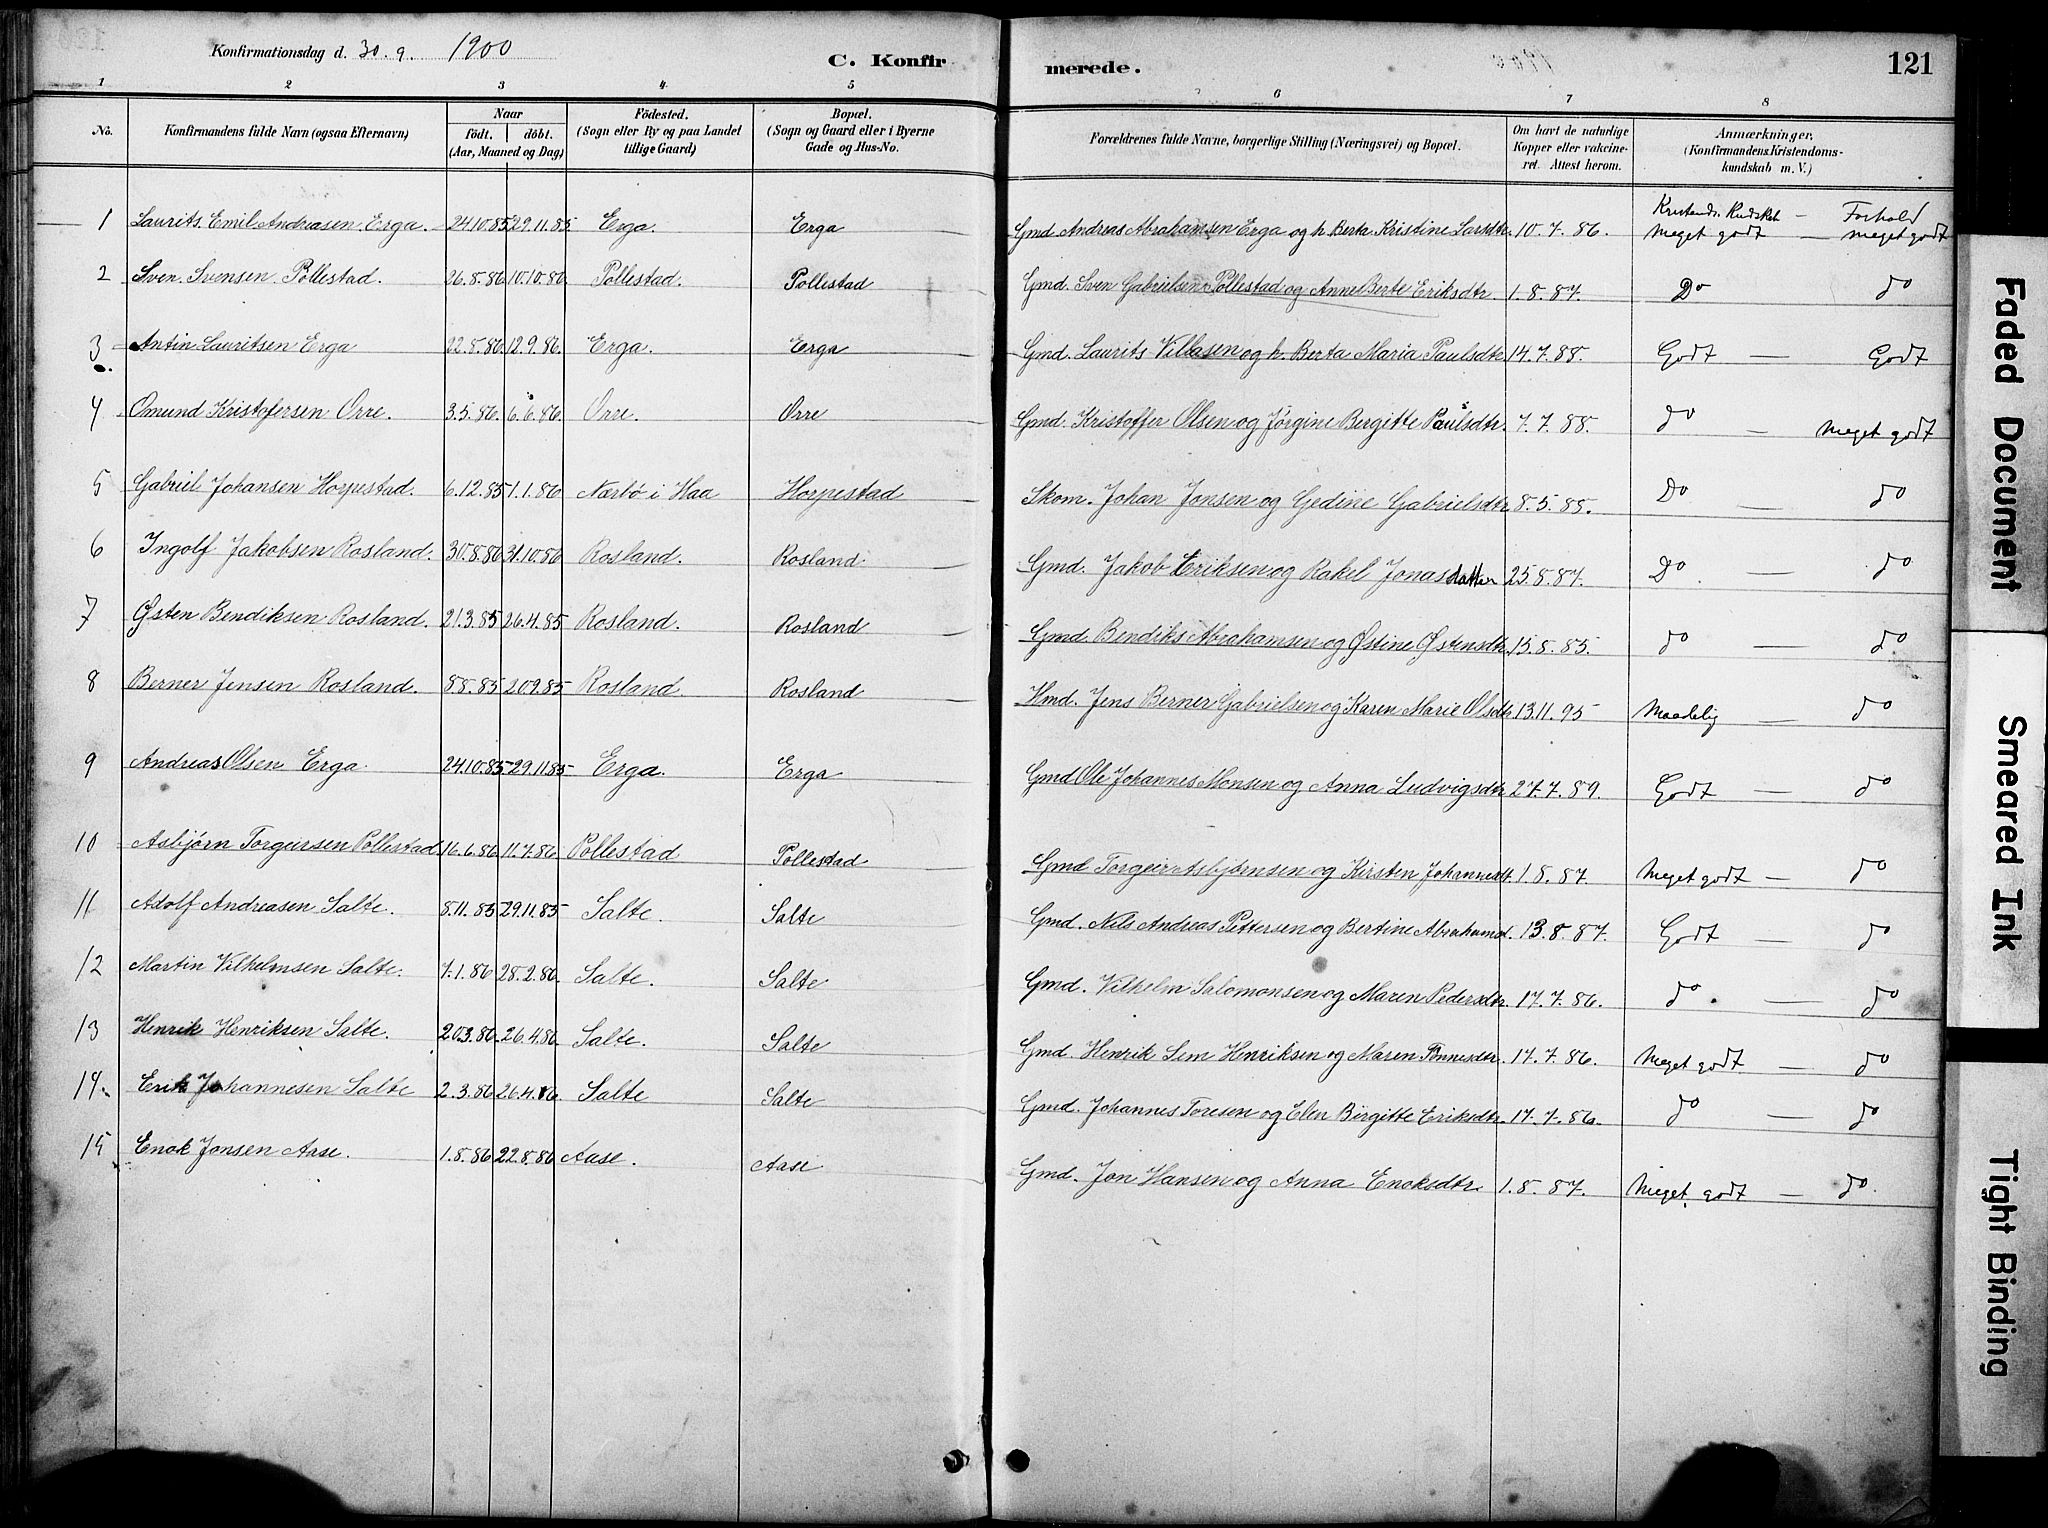 Konfirmationsdag d. 30.9. 1900 C. Konfirmerede. 121
1 2 3 4 5 6 7 8
No. Konfirmandens fulde Navn (ogsaa Efternavn) Naar födt. döbt. (Aar, Maaned og Dag) Födested. (Sogn eller By og paa Landet tillige Gaard) Bopæl. (Sogn og Gaard eller i Byerne Gade og Hus-No. Forældrenes fulde Navne, borgerlige Stilling (Næringsvei) og Bopæl. Om havt de naturlige Kopper eller vakcineret. Attest herom. Anmærkninger. (Konfirmandens Kristendomskundskab m. V.)
Kristends. Kndskab — Forhold
1 Laurits Emil Andreasen Erga. 24.10.85 29.11.85 Erga. Erga Gmd. Andreas Abrahamsen Erga og h. Berta Kristine Larsdtr. 10.7.86. meget godt — meget godt
2 Sven Svensen Pollestad. 26.8.86 10.10.86 Pollestad. Pollestad Gmd. Sven Gabrielsen Pollestad og Anne Berte Eriksdtr. 1.8.87. Do do
3 Antin Lauritsen Erga 22.8.86 12.9.86. Erga. Erga Gmd. Laurits Villasen og h. Berta Maria Paulsdtr. 14.7.88. Godt — Godt
4 Omund Kristofersen Orre. 3.5.86. 6.6.86. Orre. Orre Gmd. Kristoffer Olsen og Jørgine Bergitte Paulsdtr. 7.7.88. do — meget godt
5 Gabriel Johansen Horpestad. 6.12.85 1.1.86 Nærbö i Haa Horpestad Skom. Johan Jonsen og Gedine Gabrielsdtr. 8.5.85. Do — do
6 Ingolf Jakobsen Rosland. 30.8.86 31.10.86 Rosland. Rosland. Gmd. Jakob Eriksen og Rakel Jonasdatter 25.8.87. Do. — do
7 Østen Bendiksen Rosland. 21.3.85 26.4.85 Rosland. Rosland Gmd. Bendiks Abrahamsen og Østine Østensdtr. 15.8.85. do — do
8 Berner Jensen Rosland. 8.8.85 20.9.85 Rosland Rosland Hmd. Jens Berner Gabrielsen og Karen Marie Olsdtr. 13.11.95 Maadelig — do
9 Andreas Olsen Erga. 24.10.85 29.11.85 Erga. Erga Gmd Ole Johannes Monsen og Anna Ludvigsdtr. 27.7.89. Godt — do
10 Asbjørn Torgeirsen Pollestad 16.6.86 11.7.86 Pollestad Pollestad Gmd Torgeir Asbjørnsen og Kirsten Johannesdt. 1.8.87. Meget godt — do
11 Adolf Andreasen Salte. 8.11.85 29.11.85 Salte. Salte Gmd. Nils Andreas Pettersen og Bertine Abrahamsd. 13.8.87. Godt — do
12 Martin Vilhelmsen Salte. 7.1.86 28.2.86 Salte. Salte Gmd. Vilhelm Salomonsen og Maren Pedersdtr. 17.7.86. do. — do
13 Henrik Henriksen Salte. 20.3.86. 26.4.86. Salte. Salte Gmd. Henrik Lem Henriksen og Maren Tønnesdtr. 17.7.86. Meget godt — do
14. Erik Johannesen Salte 2.3.86 26.4.86. Salte Salte Gmd. Johannes Toresen og Elen Birgitte Eriksdtr. 17.7.86. do — do
15 Enok Jonsen Aase. 1.8.86 22.8.86 Aase. Aase Gmd. Jon Hansen og Anna Enoksdtr. 1.8.87. Meget godt — do.
Faded Document
Smeared Ink
Tight Binding